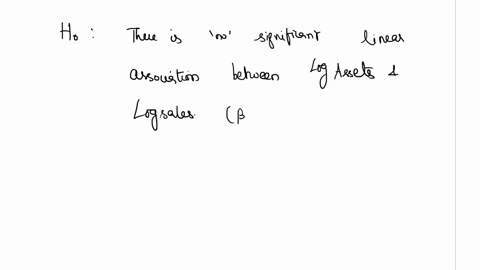 H₀ : There is 'no' significant linear
association between Log Assets &
Logsales (β